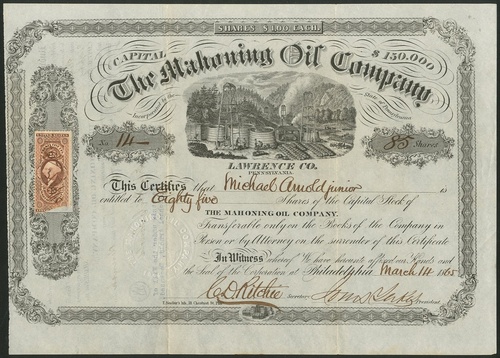 SHARES $1.00 EACH.
CAPITAL $150.000
The Mahoning Oil Company
Incorporated by the State of Pennsylvania
No. 14 85 Shares
LAWRENCE CO.
PENNSYLVANIA.
This Certifies that Michael Arnold junior is
entitled to Eighty five Shares of the Capital Stock of
THE MAHONING OIL COMPANY.
Transferable only on the Books of the Company in
Person or by Attorney on the surrender of this Certificate
In Witness whereof We have hereunto affixed our Hands and
the Seal of the Corporation at Philadelphia March 14 1865
C D Ritchie Secretary President